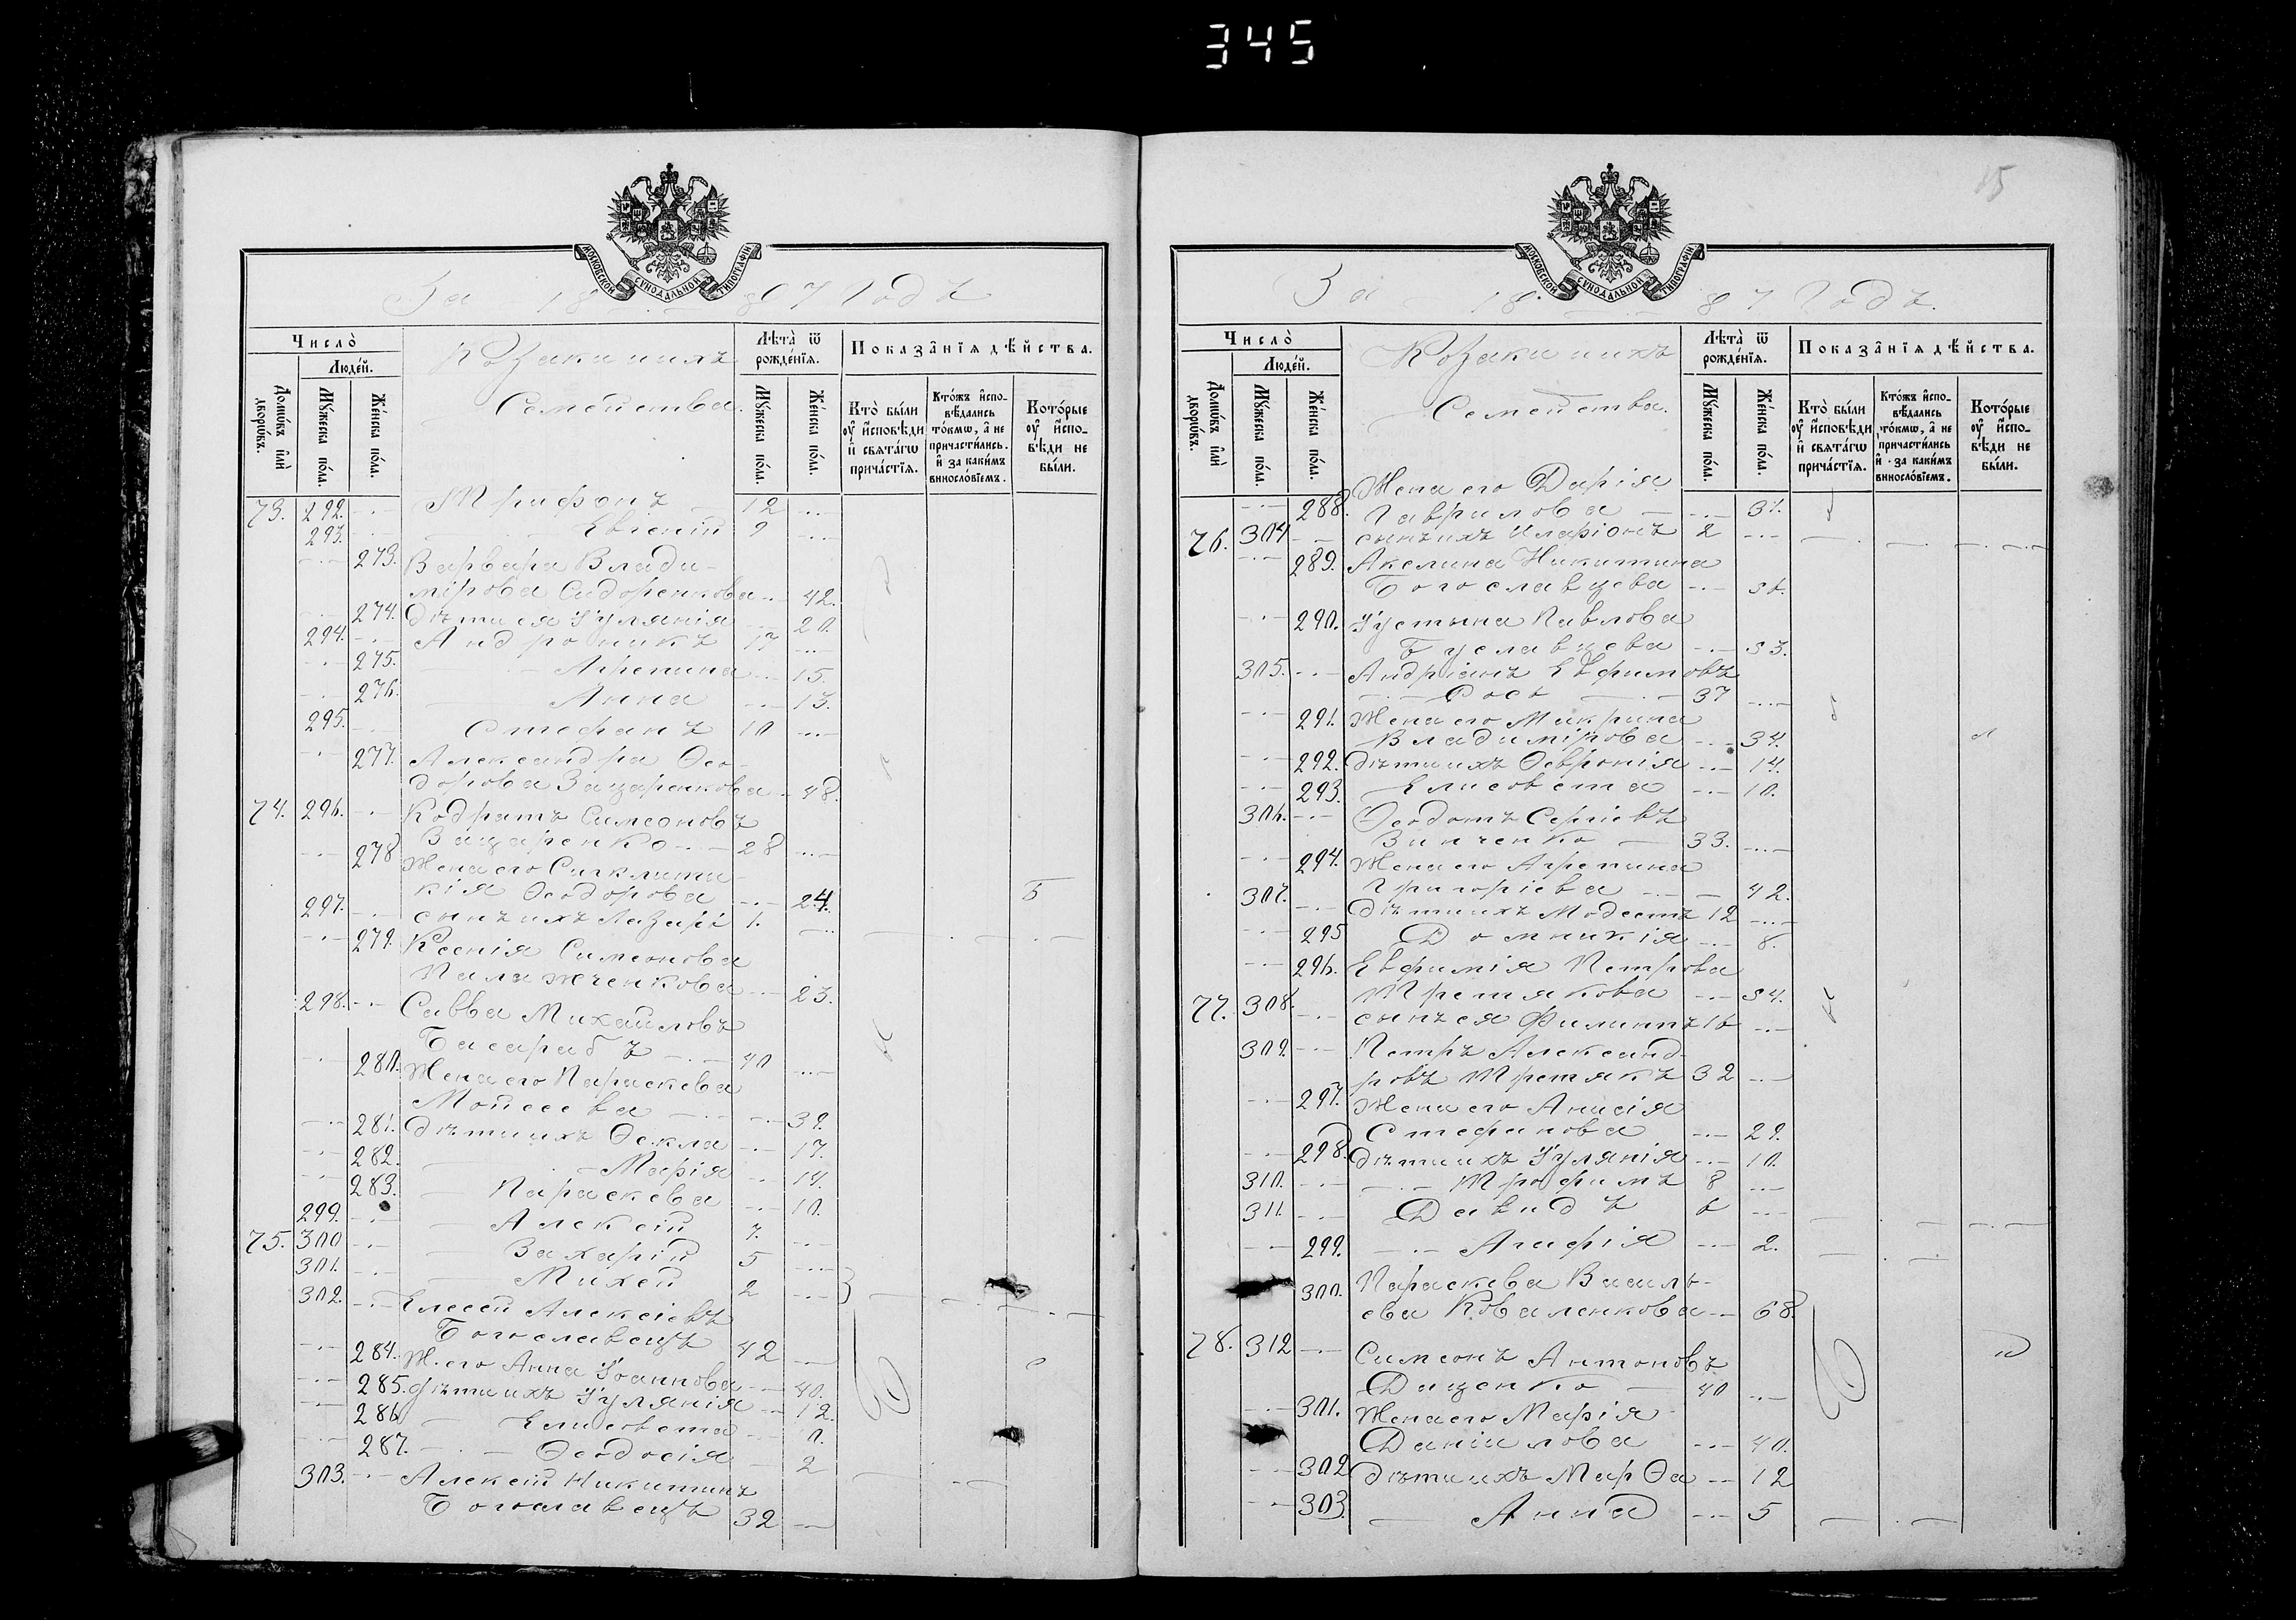 345
МОСКОВСКОЙ СѴНОДАЛЬНОЙ ТИПОГРАФІИ
За 1887 Годъ
Число̀
Людéй.
Домѡ́въ и҆лѝ дворѡ́въ.
Мꙋ́жеска по́ла.
Же́нска по́ла.
Козаки и ихъ
Семейства.
Лѣта̀ ѿ рождéнїѧ.
Мꙋ́жеска по́ла.
Же́нска по́ла.
Показа̂нїѧ дѣ́йства.
Кто̀ бы́ли ᲂу҆ и҆сповѣ́ди и҆ свѧта́гѡ прича́стїѧ.
Кто́жъ и҆спо-вѣ́дались то́кмѡ, а҆ не причасти́лись. и҆ за каки́мъ виносло́вїемъ.
Кото́рые ᲂу҆ и҆спо-вѣ́ди не бы́ли.
73. 292. Трифонъ 12
293. Евгеній 9
273. Варвара Влади-
мірова Сидоренкова 42.
274. Дѣти ея Іулянія 20.
294. Андроникъ 17
275. Агрепина 15.
276. Анна 13.
295. Стефанъ 10
277. Александра Ѳео-
дорова Зацаренкова 48.
74. 296. Кодратъ Симеоновъ
Зацаренко 28
278 Жена его Сигклити-
кія Ѳеодорова 24. Б
297. сынъ ихъ Лазарь 1.
279. Ксенія Симеонова
Паламженкова 23.
298. Савва Михаиловъ
Басарабъ 40
280. Жена его Параскева
Моисеева 39.
281. дѣти ихъ Ѳекла 17.
282. Марія 14.
283. Параскева 10.
299. Алексій 7.
75. 300 Захарій 5
301. Михей 2
302. Елесей Алексіевъ
Богославецъ 42
284. Ж. его Анна Іоаннова 40.
285. дѣти ихъ Іулянія 12.
286 Елисовета
287. Ѳеодосія 2
303. Алексій Никитинъ
Богославецъ 32
15
МОСКОВСКОЙ СѴНОДАЛЬНОЙ ТИПОГРАФІИ
За 1887 Годъ.
Число̀
Людéй.
Домѡ́въ и҆лѝ дворѡ́въ.
Мꙋ́жеска по́ла.
Же́нска по́ла.
Козаки и ихъ
Семейства.
Лѣта̀ ѿ рождéнїѧ.
Мꙋ́жеска по́ла.
Же́нска по́ла.
Показа̂нїѧ дѣ́йства.
Кто̀ бы́ли ᲂу҆ и҆сповѣ́ди и҆ свѧта́гѡ прича́стїѧ.
Кто́жъ и҆спо-вѣ́дались то́кмѡ, а҆ не причасти́лись и҆ за каки́мъ виносло́вїемъ.
Кото́рые ᲂу҆ и҆спо-вѣ́ди не бы́ли.
288. Жена его Дарія
Гаврилова 31.
76. 304 сынъ ихъ Иларіонъ 2
289. Акелина Никитина
Богославцева 56.
290. Іустина Павлова
Буславцева 53.
305. Андріанъ Евфимовъ
Рось 37
291. Жена его Макрина
Владимірова 34.
292. дѣти ихъ Ѳевронія 14.
293. Елисовета 10.
306. Ѳеодотъ Сергіевъ
Зинченко 33.
294. Жена его Агрепина
Григоріева 42.
307. дѣти ихъ Модестъ 12
295 Домникія 8.
296. Евфимія Петрова
Третякова 54.
77. 308. сынъ ея Филиппъ 16
309. Петръ Александ-
ровъ Третякъ 32
297. Жена его Анисія
Стефанова 29.
298. дѣти ихъ Іулянія 10.
310. Трофимъ 8
311. Давидъ 6
299. Агафія 2.
300. Параскева Василь-
ева Коваленкова 68.
78. 312 Симеонъ Антоновъ
Даценко 40
301. Жена его Марія
Даніилова 40.
302 дѣти ихъ Марѳа 12
303. Анна 5